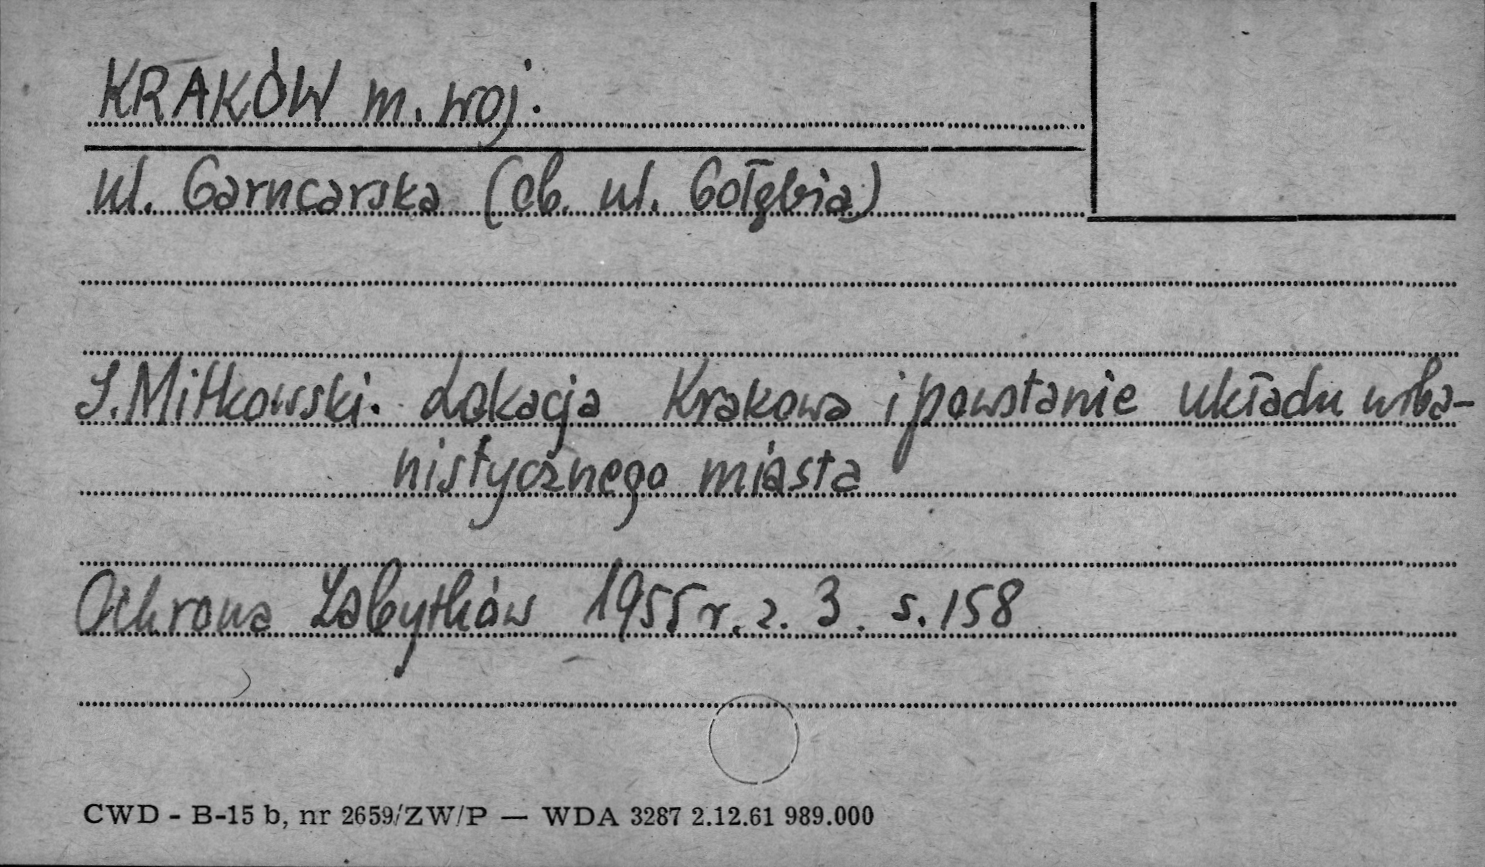 KRAKÓW m. woj.
ul. Garncarska (ob. ul. Gołębia)
J. Mitkowski. Lokacja Krakowa i powstanie układu urba-
nistycznego miasta
Ochrona Zabytków 1955 r. z. 3. s. 158
CWD - B-15 b, nr 2659/ZW/P — WDA 3287 2.12.61 989.000